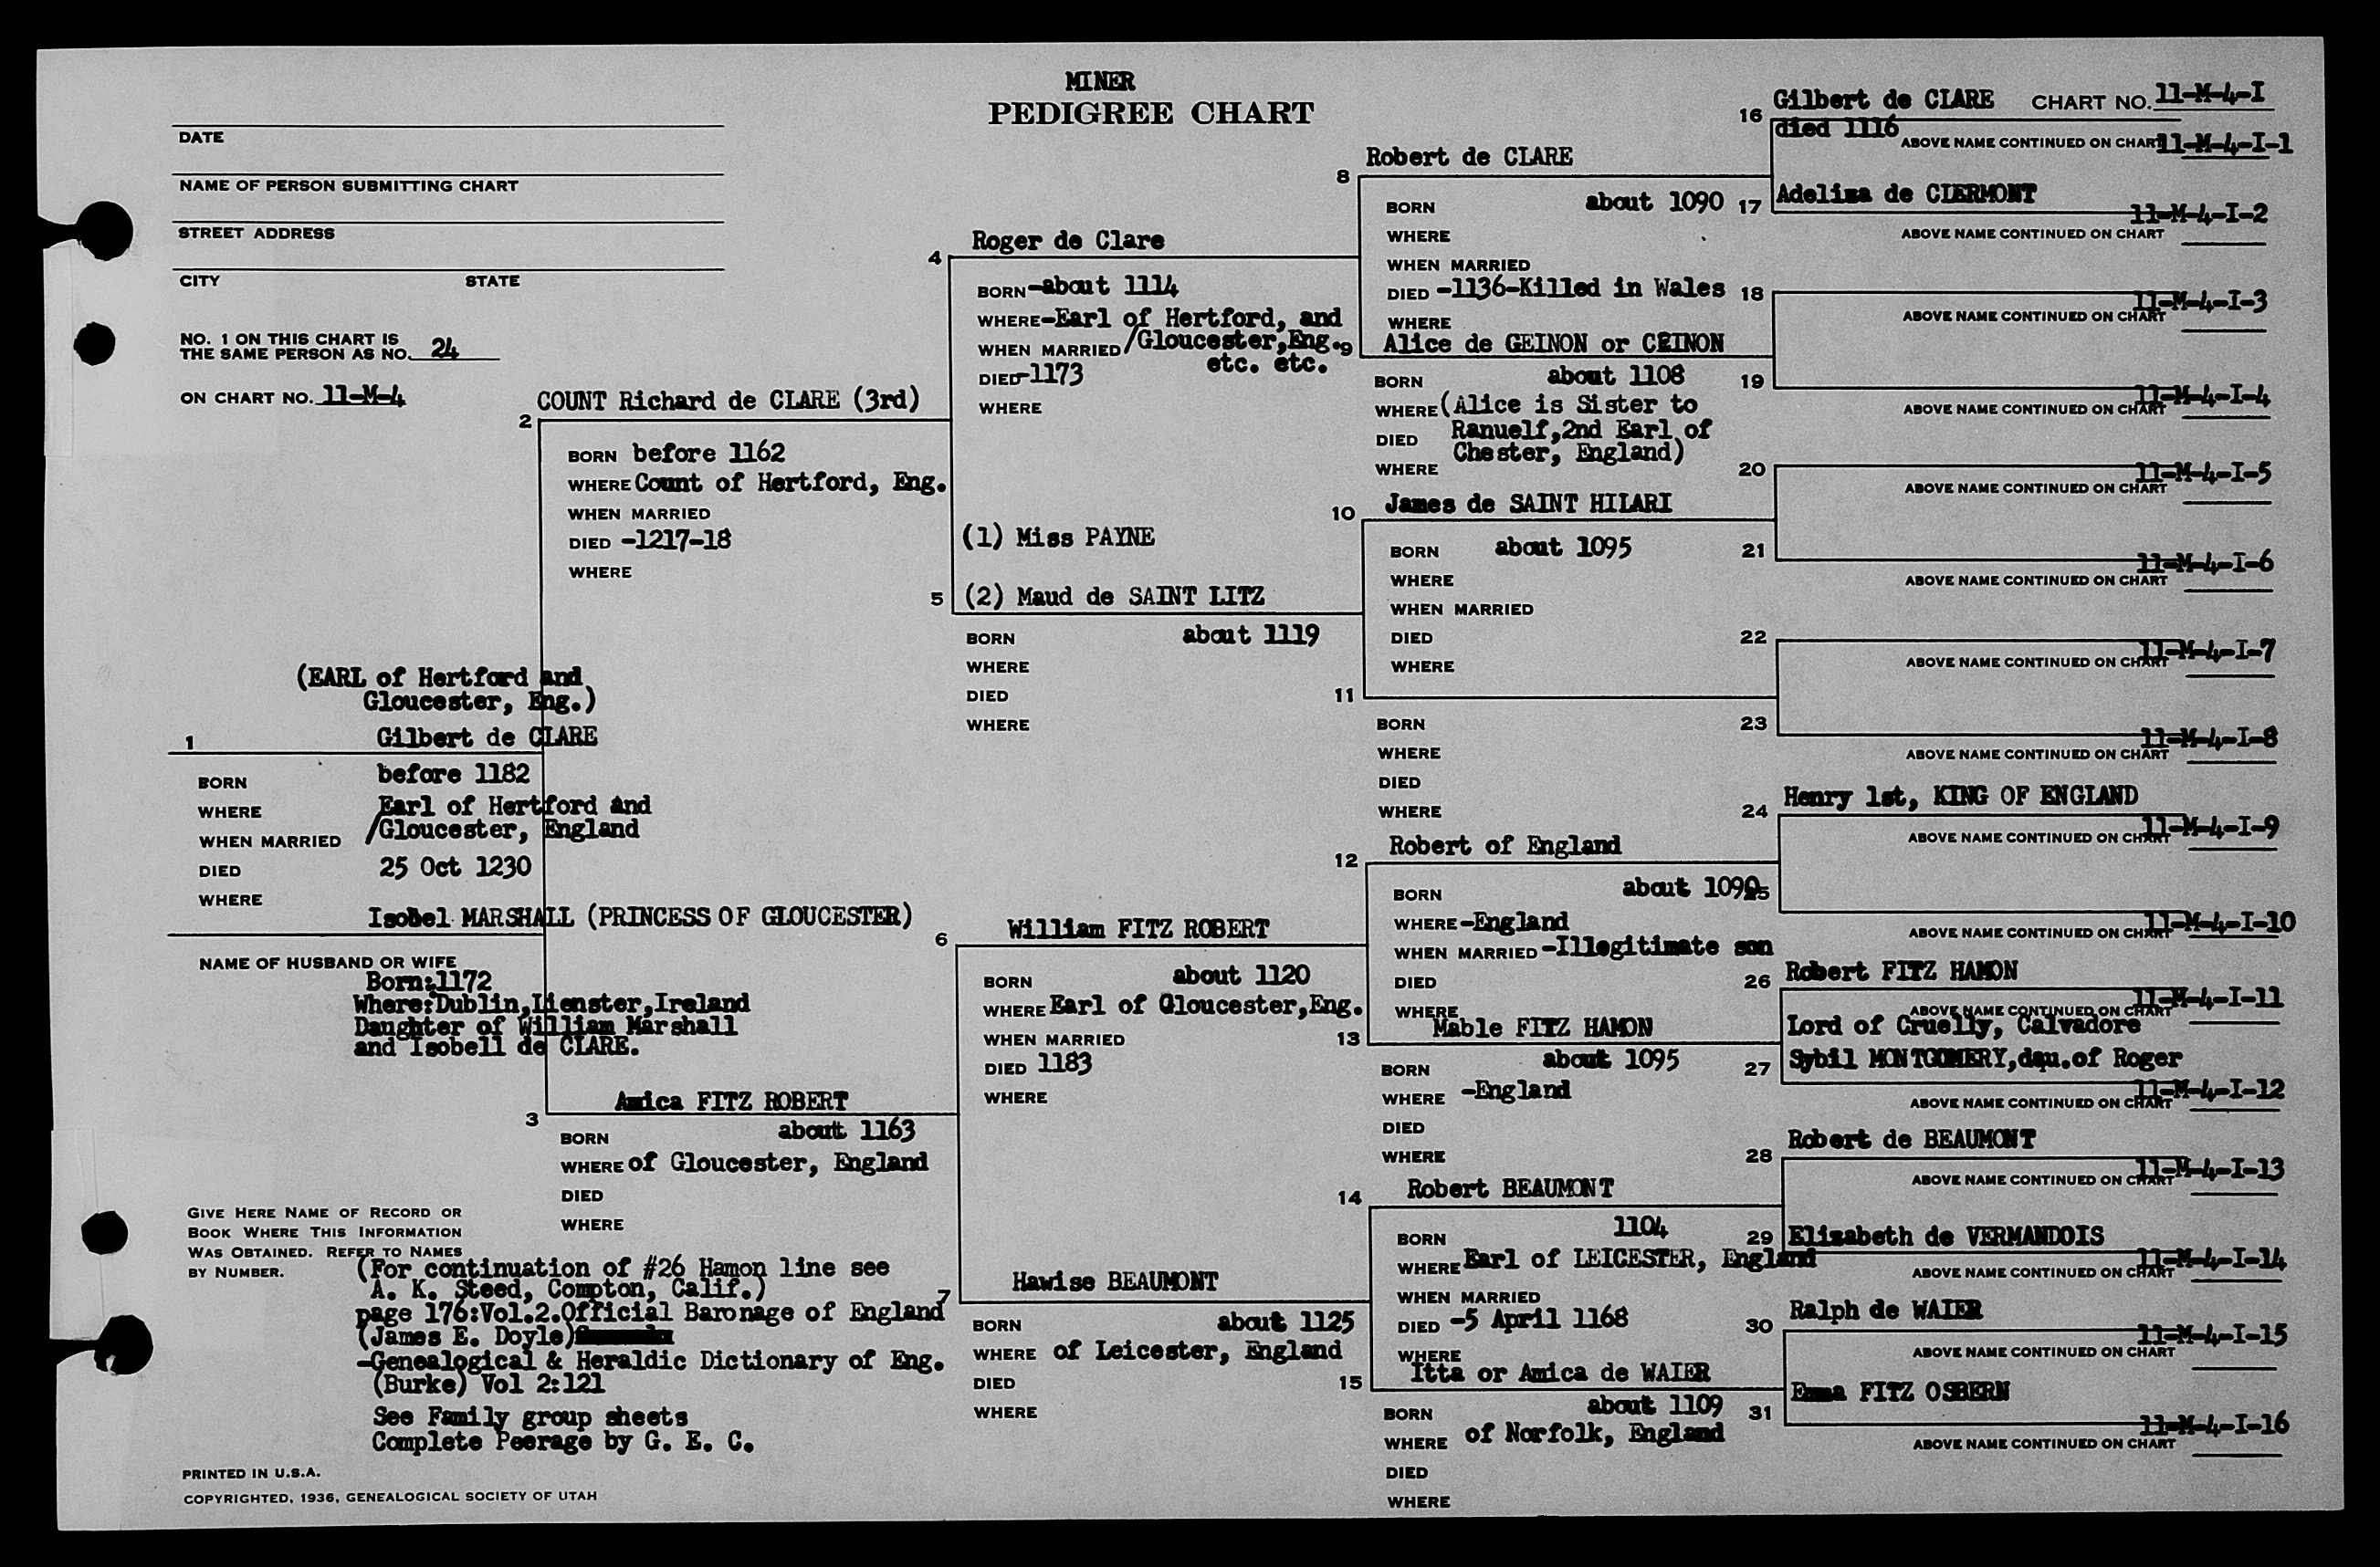 MINER
PEDIGREE CHART
CHART NO. 11-M-4-I
DATE
NAME OF PERSON SUBMITTING CHART
STREET ADDRESS
CITY STATE
NO. 1 ON THIS CHART IS
THE SAME PERSON AS NO. 24
ON CHART NO. 11-M-4
(EARL of Hertford and
Gloucester, Eng.)
1 Gilbert de CLARE
BORN before 1182
WHERE Earl of Hertford and
WHEN MARRIED /Gloucester, England
DIED 25 Oct 1230
WHERE
Isobel MARSHALL (PRINCESS OF GLOUCESTER)
NAME OF HUSBAND OR WIFE
Born:1172
Where:Dublin,Lienster,Ireland
Daughter of William Marshall
and Isobell de CLARE.
2 COUNT Richard de CLARE (3rd)
BORN before 1162
WHERE Count of Hertford, Eng.
WHEN MARRIED
DIED -1217-18
WHERE
3 Amica FITZ ROBERT
BORN about 1163
WHERE of Gloucester, England
DIED
WHERE
4 Roger de Clare
BORN-about 1114
WHERE-Earl of Hertford, and
WHEN MARRIED /Gloucester,Eng.
etc. etc.
DIED-1173
WHERE
(1) Miss PAYNE
5 (2) Maud de SAINT LITZ
BORN about 1119
WHERE
DIED
WHERE
6 William FITZ ROBERT
BORN about 1120
WHERE Earl of Gloucester,Eng.
WHEN MARRIED
DIED 1183
WHERE
7 Hawise BEAUMONT
BORN about 1125
WHERE of Leicester, England
DIED
WHERE
8 Robert de CLARE
BORN about 1090
WHERE
WHEN MARRIED
DIED -1136-Killed in Wales
WHERE
9 Alice de GEINON or CEINON
BORN about 1108
WHERE (Alice is Sister to
DIED Ranuelf,2nd Earl of
Chester, England)
WHERE
10 James de SAINT HILARI
BORN about 1095
WHERE
WHEN MARRIED
DIED
WHERE
11
BORN
WHERE
DIED
WHERE
12 Robert of England
BORN about 1090
WHERE-England
WHEN MARRIED-Illegitimate son
DIED
WHERE
13 Mable FITZ HAMON
BORN about 1095
WHERE -England
DIED
WHERE
14 Robert BEAUMONT
BORN 1104
WHERE Earl of LEICESTER, England
WHEN MARRIED
DIED -5 April 1168
WHERE
15 Itta or Amica de WAIER
BORN about 1109
WHERE of Norfolk, England
DIED
WHERE
16 Gilbert de CLARE
died 1116
ABOVE NAME CONTINUED ON CHART 11-M-4-I-1
17 Adeliza de CLERMONT
11-M-4-I-2
ABOVE NAME CONTINUED ON CHART
18 11-M-4-I-3
ABOVE NAME CONTINUED ON CHART
19 11-M-4-I-4
ABOVE NAME CONTINUED ON CHART
20 11-M-4-I-5
ABOVE NAME CONTINUED ON CHART
21 11-M-4-I-6
ABOVE NAME CONTINUED ON CHART
22 11-M-4-I-7
ABOVE NAME CONTINUED ON CHART
23 11-M-4-I-8
ABOVE NAME CONTINUED ON CHART
24 Henry 1st, KING OF ENGLAND
ABOVE NAME CONTINUED ON CHART 11-M-4-I-9
25 11-M-4-I-10
ABOVE NAME CONTINUED ON CHART
26 Robert FITZ HAMON
ABOVE NAME CONTINUED ON CHART 11-M-4-I-11
Lord of Cruelly, Calvadore
27 Sybil MONTGOMERY,dau.of Roger
11-M-4-I-12
ABOVE NAME CONTINUED ON CHART
28 Robert de BEAUMONT
ABOVE NAME CONTINUED ON CHART 11-M-4-I-13
29 Elizabeth de VERMANDOIS
11-M-4-I-14
ABOVE NAME CONTINUED ON CHART
30 Ralph de WAIER
11-M-4-I-15
ABOVE NAME CONTINUED ON CHART
31 Emma FITZ OSBERN
11-M-4-I-16
ABOVE NAME CONTINUED ON CHART
GIVE HERE NAME OF RECORD OR
BOOK WHERE THIS INFORMATION
WAS OBTAINED. REFER TO NAMES
BY NUMBER.
(For continuation of #26 Hamon line see
A. K. Steed, Compton, Calif.)
page 176:Vol.2.Official Baronage of England
(James E. Doyle)
-Genealogical & Heraldic Dictionary of Eng.
(Burke) Vol 2:121
See Family group sheets
Complete Peerage by G. E. C.
PRINTED IN U.S.A.
COPYRIGHTED, 1936, GENEALOGICAL SOCIETY OF UTAH